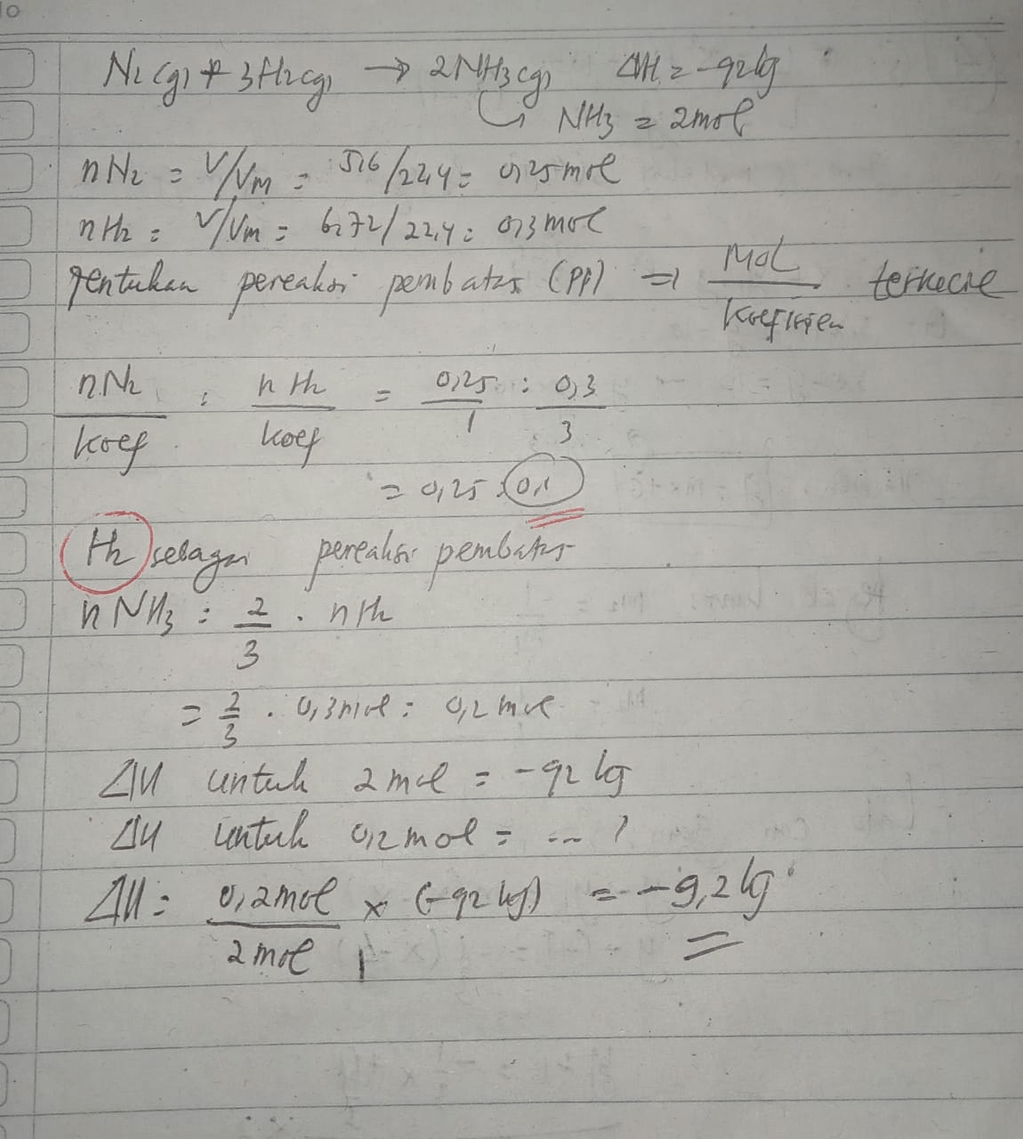 N2 (g) + 3H2 (g) → 2NH3 (g) ΔH = -92 kJ
↳ NH3 = 2 mol
n N2 = V/Vm = 5,6/22,4 = 0,25 mol
n H2 = V/Vm = 6,72/22,4 = 0,3 mol
Tentukan pereaksi pembatas (PP) ⇒ Mol / Koefisien terkecil
n N2 / koef : n H2 / koef = 0,25 / 1 : 0,3 / 3
= 0,25 : 0,1
H2 sebagai pereaksi pembatas
n NH3 = 2/3 . n H2
= 2/3 . 0,3 mol = 0,2 mol
ΔH untuk 2 mol = -92 kJ
ΔH untuk 0,2 mol = ... ?
ΔH = 0,2 mol / 2 mol × (-92 kJ) = -9,2 kJ